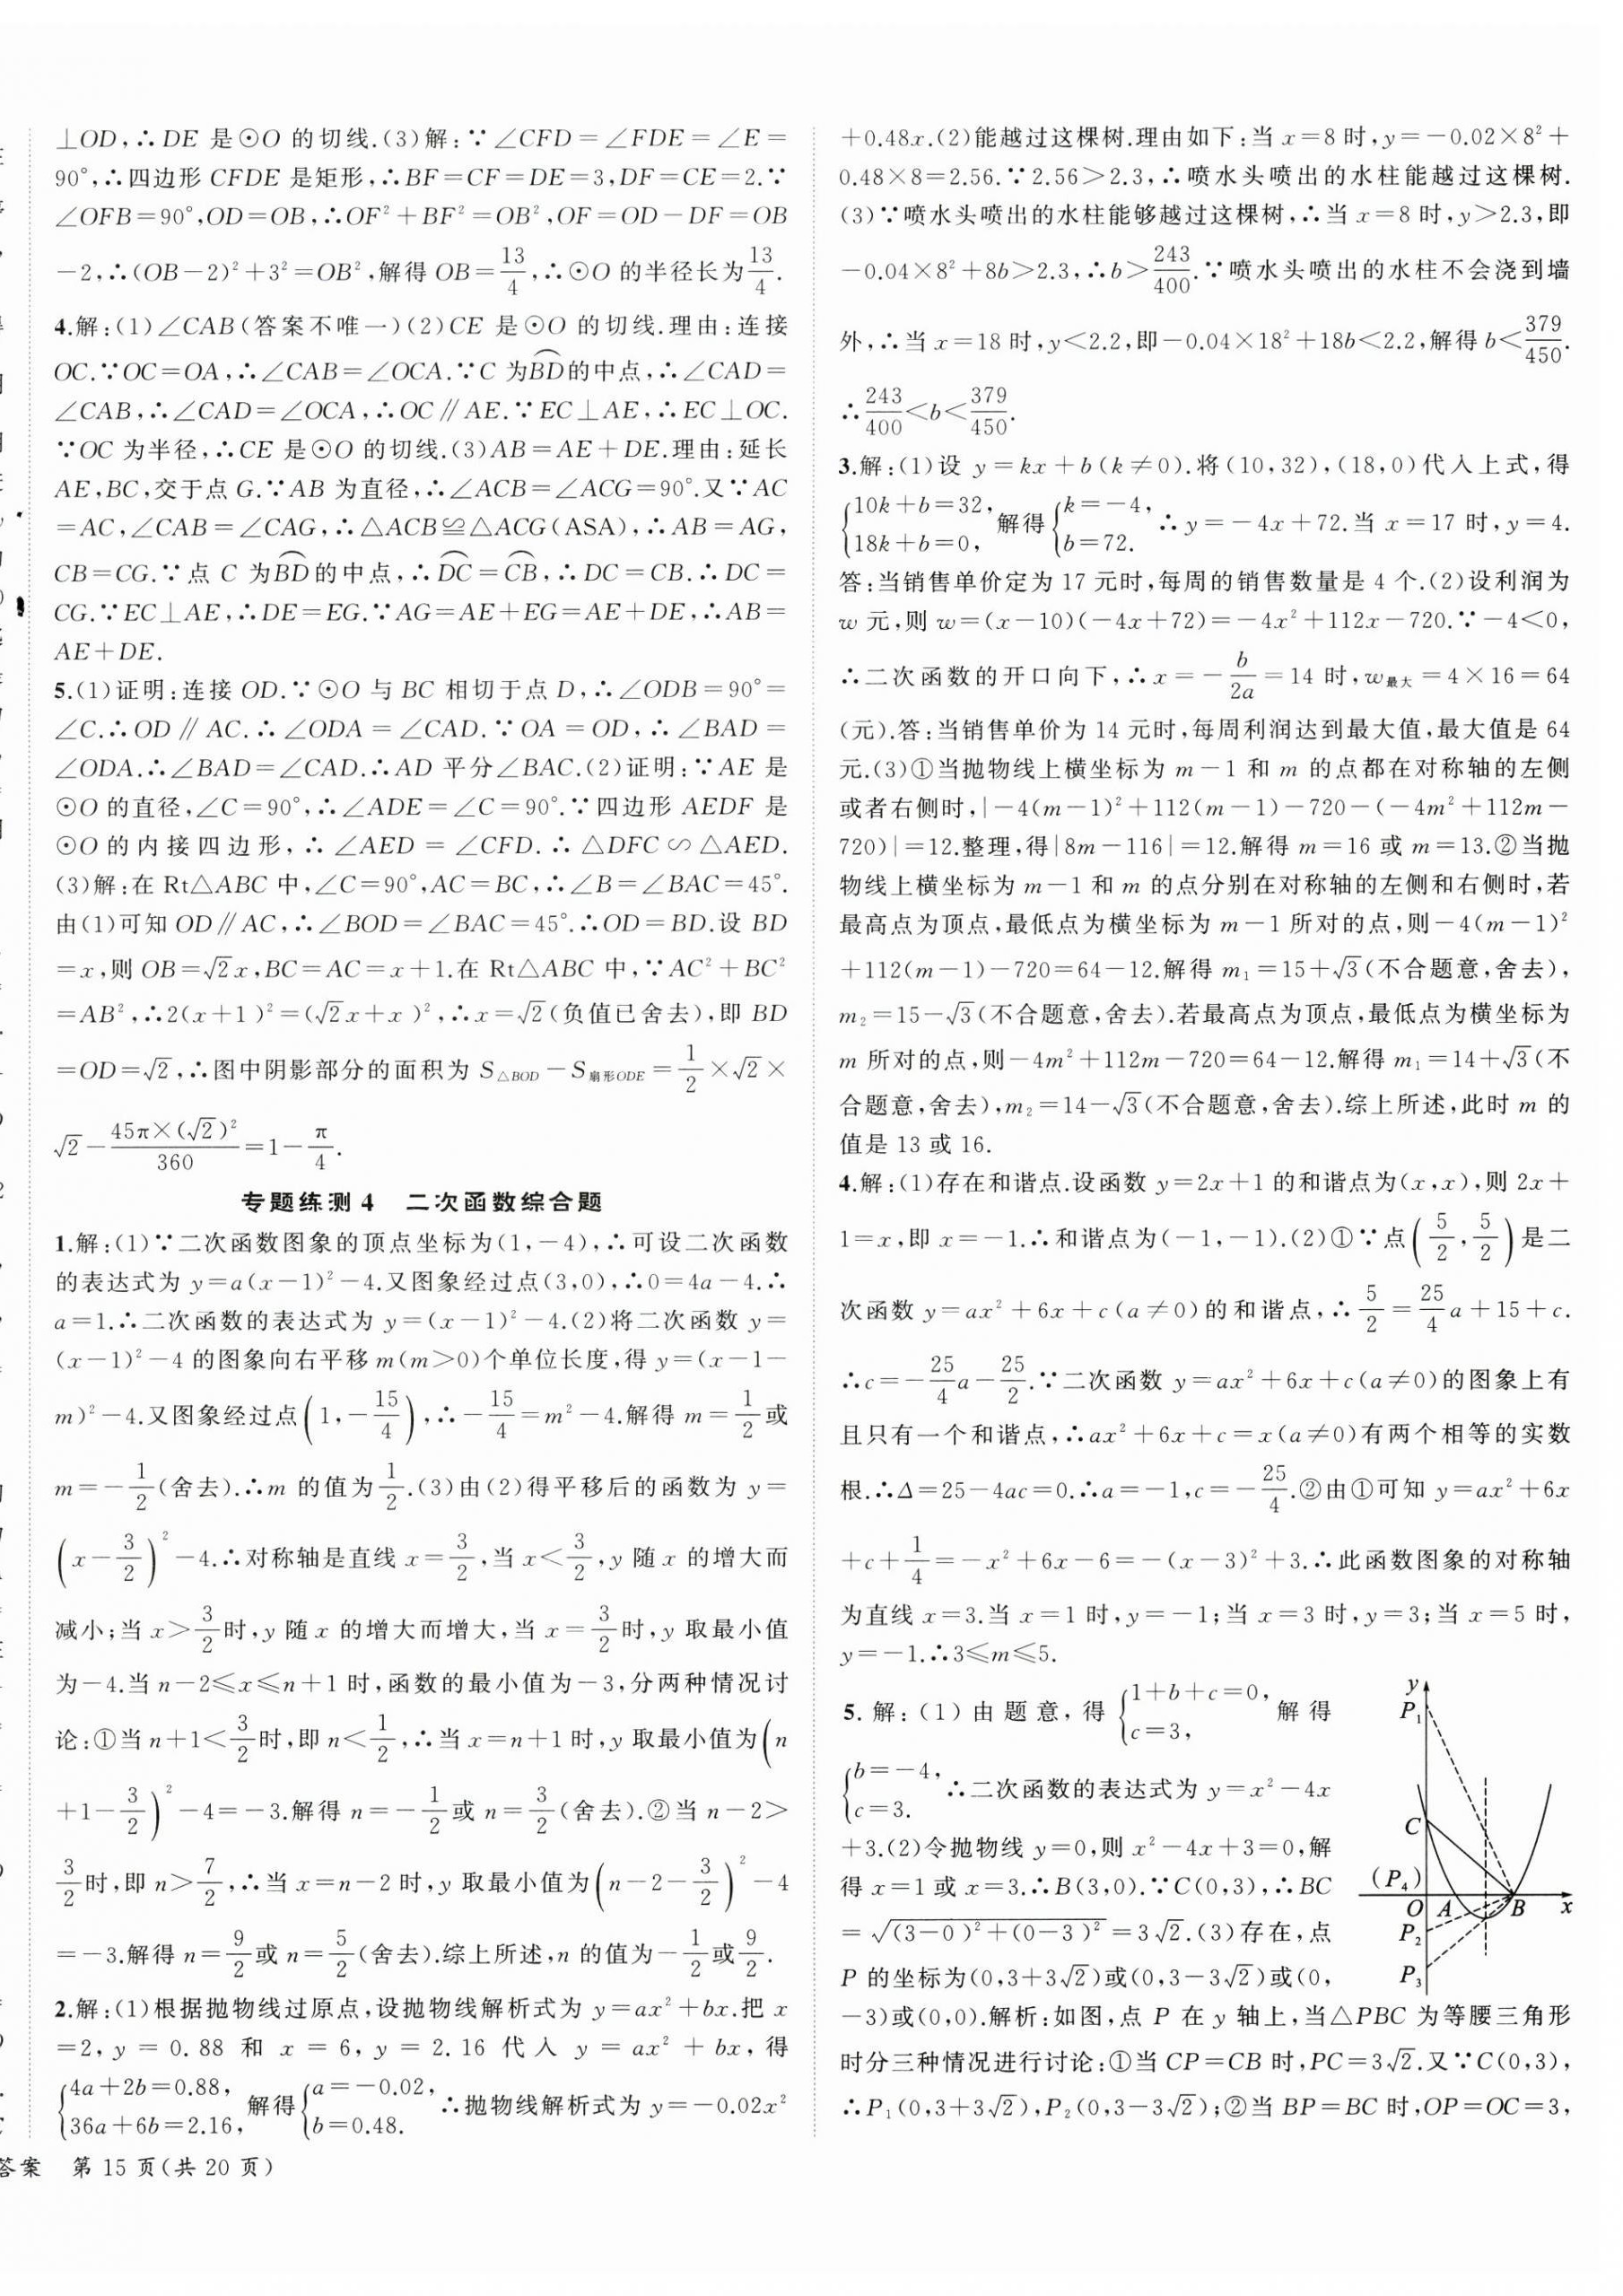 ⊥OD,∴DE 是⊙O 的切线.(3)解:∵∠CFD=∠FDE=∠E=
90°,∴四边形 CFDE 是矩形,∴BF=CF=DE=3,DF=CE=2.∵
∠OFB=90°,OD=OB,∴OF²+BF²=OB²,OF=OD-DF=OB
-2,∴(OB-2)²+3²=OB²,解得 OB=13/4,∴⊙O 的半径长为13/4.
4.解:(1)∠CAB(答案不唯一)(2)CE 是⊙O 的切线.理由:连接
OC.∵OC=OA,∴∠CAB=∠OCA.∵C 为BD⌢的中点,∴∠CAD=
∠CAB,∴∠CAD=∠OCA,∴OC∥AE.∵EC⊥AE,∴EC⊥OC.
∵OC 为半径,∴CE 是⊙O 的切线.(3)AB=AE+DE.理由:延长
AE,BC,交于点 G.∵AB 为直径,∴∠ACB=∠ACG=90°.又∵AC
=AC,∠CAB=∠CAG,∴△ACB≌△ACG(ASA),∴AB=AG,
CB=CG.∵点 C 为BD⌢的中点,∴DC⌢=CB⌢,∴DC=CB.∴DC=
CG.∵EC⊥AE,∴DE=EG.∵AG=AE+EG=AE+DE,∴AB=
AE+DE.
5.(1)证明:连接 OD.∵⊙O 与 BC 相切于点 D,∴∠ODB=90°=
∠C.∴OD∥AC.∴∠ODA=∠CAD.∵OA=OD,∴∠BAD=
∠ODA.∴∠BAD=∠CAD.∴AD 平分∠BAC.(2)证明:∵AE 是
⊙O 的直径,∠C=90°,∴∠ADE=∠C=90°.∵四边形 AEDF 是
⊙O 的内接四边形,∴∠AED=∠CFD.∴△DFC∽△AED.
(3)解:在 Rt△ABC 中,∠C=90°,AC=BC,∴∠B=∠BAC=45°.
由(1)可知 OD∥AC,∴∠BOD=∠BAC=45°.∴OD=BD.设 BD
=x,则 OB=√2x,BC=AC=x+1.在 Rt△ABC 中,∵AC²+BC²
=AB²,∴2(x+1)²=(√2x+x)²,∴x=√2(负值已舍去),即 BD
=OD=√2,∴图中阴影部分的面积为 S△BOD-S扇形ODE=1/2×√2×
√2-45π×(√2)²/360=1-π/4.
专题练测 4 二次函数综合题
1.解:(1)∵二次函数图象的顶点坐标为(1,-4),∴可设二次函数
的表达式为 y=a(x-1)²-4.又图象经过点(3,0),∴0=4a-4.∴
a=1.∴二次函数的表达式为 y=(x-1)²-4.(2)将二次函数 y=
(x-1)²-4 的图象向右平移 m(m>0)个单位长度,得 y=(x-1-
m)²-4.又图象经过点(1,-15/4),∴-15/4=m²-4.解得 m=1/2或
m=-1/2(舍去).∴m 的值为1/2.(3)由(2)得平移后的函数为 y=
(x-3/2)²-4.∴对称轴是直线 x=3/2,当 x<3/2,y 随 x 的增大而
减小;当 x>3/2时,y 随 x 的增大而增大,当 x=3/2时,y 取最小值
为-4.当 n-2≤x≤n+1 时,函数的最小值为-3,分两种情况讨
论:①当 n+1<3/2时,即 n<1/2,∴当 x=n+1 时,y 取最小值为(n
+1-3/2)²-4=-3.解得 n=-1/2或 n=3/2(舍去).②当 n-2>
3/2时,即 n>7/2,∴当 x=n-2 时,y 取最小值为(n-2-3/2)²-4
=-3.解得 n=9/2或 n=5/2(舍去).综上所述,n 的值为-1/2或9/2.
2.解:(1)根据抛物线过原点,设抛物线解析式为 y=ax²+bx.把 x
=2,y=0.88 和 x=6,y=2.16 代入 y=ax²+bx,得
{4a+2b=0.88, 36a+6b=2.16, 解得{a=-0.02, b=0.48. ∴抛物线解析式为 y=-0.02x²
答案 第 15 页(共 20 页)
+0.48x.(2)能越过这棵树.理由如下:当 x=8 时,y=-0.02×8²+
0.48×8=2.56.∵2.56>2.3,∴喷水头喷出的水柱能越过这棵树.
(3)∵喷水头喷出的水柱能够越过这棵树,∴当 x=8 时,y>2.3,即
-0.04×8²+8b>2.3,∴b>243/400.∵喷水头喷出的水柱不会浇到墙
外,∴当 x=18 时,y<2.2,即-0.04×18²+18b<2.2,解得 b<379/450.
∴243/400<b<379/450.
3.解:(1)设 y=kx+b(k≠0).将(10,32),(18,0)代入上式,得
{10k+b=32, 18k+b=0, 解得{k=-4, b=72. ∴y=-4x+72.当 x=17 时,y=4.
答:当销售单价定为 17 元时,每周的销售数量是 4 个.(2)设利润为
w 元,则 w=(x-10)(-4x+72)=-4x²+112x-720.∵-4<0,
∴二次函数的开口向下,∴x=-b/2a=14 时,w最大=4×16=64
(元).答:当销售单价为 14 元时,每周利润达到最大值,最大值是 64
元.(3)①当抛物线上横坐标为 m-1 和 m 的点都在对称轴的左侧
或者右侧时,|-4(m-1)²+112(m-1)-720-(-4m²+112m-
720)|=12.整理,得|8m-116|=12.解得 m=16 或 m=13.②当抛
物线上横坐标为 m-1 和 m 的点分别在对称轴的左侧和右侧时,若
最高点为顶点,最低点为横坐标为 m-1 所对的点,则-4(m-1)²
+112(m-1)-720=64-12.解得 m₁=15+√3(不合题意,舍去),
m₂=15-√3(不合题意,舍去).若最高点为顶点,最低点为横坐标为
m 所对的点,则-4m²+112m-720=64-12.解得 m₁=14+√3(不
合题意,舍去),m₂=14-√3(不合题意,舍去).综上所述,此时 m 的
值是 13 或 16.
4.解:(1)存在和谐点.设函数 y=2x+1 的和谐点为(x,x),则 2x+
1=x,即 x=-1.∴和谐点为(-1,-1).(2)①∵点(5/2,5/2)是二
次函数 y=ax²+6x+c(a≠0)的和谐点,∴5/2=25/4a+15+c.
∴c=-25/4a-25/2.∵二次函数 y=ax²+6x+c(a≠0)的图象上有
且只有一个和谐点,∴ax²+6x+c=x(a≠0)有两个相等的实数
根.∴Δ=25-4ac=0.∴a=-1,c=-25/4.②由①可知 y=ax²+6x
+c+1/4=-x²+6x-6=-(x-3)²+3.∴此函数图象的对称轴
为直线 x=3.当 x=1 时,y=-1;当 x=3 时,y=3;当 x=5 时,
y=-1.∴3≤m≤5.
5.解:(1)由题意,得{1+b+c=0, c=3, 解得
{b=-4, c=3. ∴二次函数的表达式为 y=x²-4x
+3.(2)令抛物线 y=0,则 x²-4x+3=0,解
得 x=1 或 x=3.∴B(3,0).∵C(0,3),∴BC
=√((3-0)²+(0-3)²)=3√2.(3)存在,点
P 的坐标为(0,3+3√2)或(0,3-3√2)或(0,
-3)或(0,0).解析:如图,点 P 在 y 轴上,当△PBC 为等腰三角形
时分三种情况进行讨论:①当 CP=CB 时,PC=3√2.又∵C(0,3),
∴P₁(0,3+3√2),P₂(0,3-3√2);②当 BP=BC 时,OP=OC=3,
y
P₁
C
(P₄)
O A B x
P₂
P₃